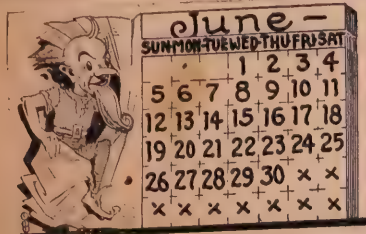 June-
SUN-MON-TUE-WED-THU-FRI-SAT
1 2 3 4
5 6 7 8 9 10 11
12 13 14 15 16 17 18
19 20 21 22 23 24 25
26 27 28 29 30 x x
x x x x x x x